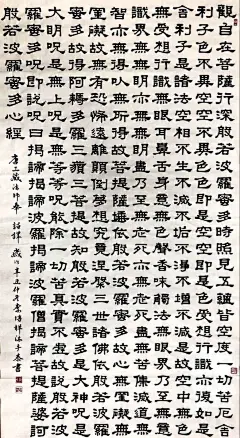 觀自在菩薩行深般若波羅蜜多時照見五蘊皆空度一切苦厄舍
利子色不異空空不異色色即是空空即是色受想行識亦復如是
舍利子是諸法空相不生不滅不垢不淨不增不減是故空中無色
無受想行識無眼耳鼻舌身意無色聲香味觸法無眼界乃至無意
識界無無明亦無無明盡乃至無老死亦無老死盡無苦集滅道無
智亦無得以無所得故菩提薩埵依般若波羅蜜多故心無罣礙無
罣礙故無有恐怖遠離顛倒夢想究竟涅槃三世諸佛依般若波羅
蜜多故得阿耨多羅三藐三菩提故知般若波羅蜜多是大神呪是
大明呪是無上呪是無等等呪能除一切苦真實不虛故說般若波
羅蜜多呪即說呪曰揭諦揭諦波羅揭諦波羅僧揭諦菩提薩婆訶
般若波羅蜜多心經
唐三藏法師奉 詔譯